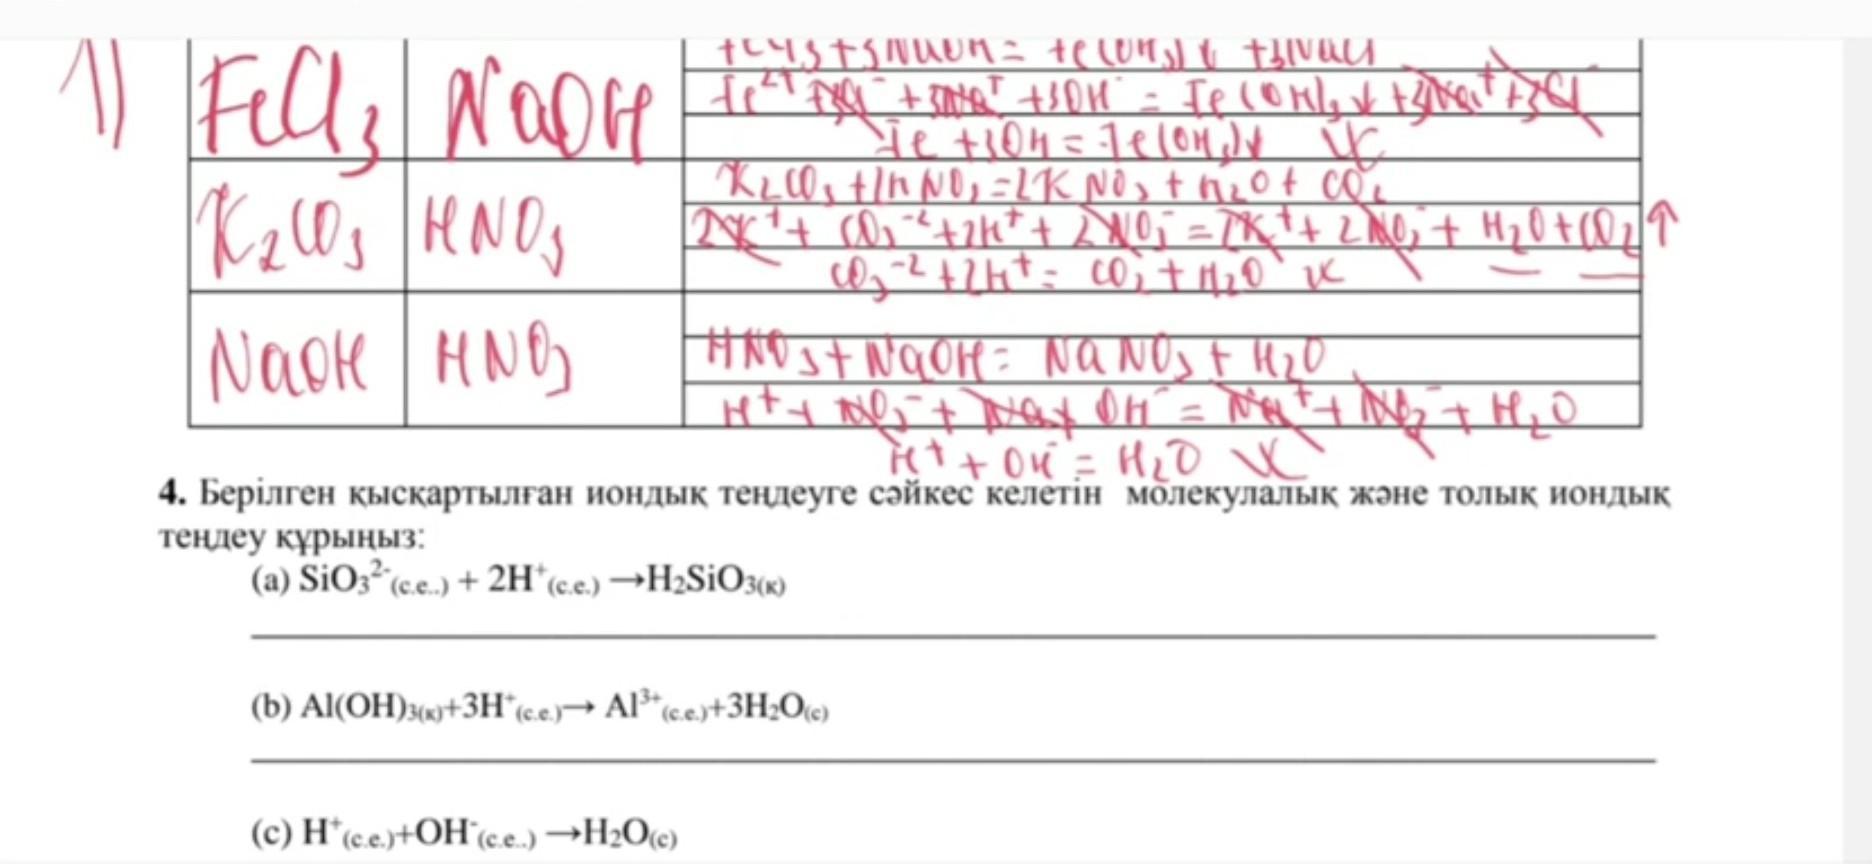 1)
FeCl₃ NaOH
FeCl₃+3NaOH = Fe(OH)₃↓ +3NaCl
+3Na⁺ +3OH⁻ = Fe(OH)₃↓ +3Na⁺+3Cl⁻
Fe +3OH = Fe(OH)₃↓
K₂CO₃ HNO₃
K₂CO₃ +2HNO₃ =2KNO₃ + H₂O + CO₂
2K⁺ + CO₃⁻² +2H⁺ + 2NO₃⁻ = 2K⁺ + 2NO₃⁻ + H₂O + CO₂↑
CO₃⁻² +2H⁺ = CO₂ + H₂O
NaOH HNO₃
HNO₃ + NaOH = NaNO₃ + H₂O
H⁺ + NO₃⁻ + Na+ OH⁻ = Na⁺ + NO₃⁻ + H₂O
H⁺ + OH⁻ = H₂O
4. Берілген қысқартылған иондық теңдеуге сәйкес келетін молекулалық және толық иондық
теңдеу құрыңыз:
(a) SiO₃²⁻(с.е..) + 2H⁺(с.е.) →H₂SiO₃(к)
(b) Al(OH)₃(к)+3H⁺(с.е.)→ Al³⁺(с.е.)+3H₂O(с)
(c) H⁺(с.е.)+OH⁻(с.е..) →H₂O(с)